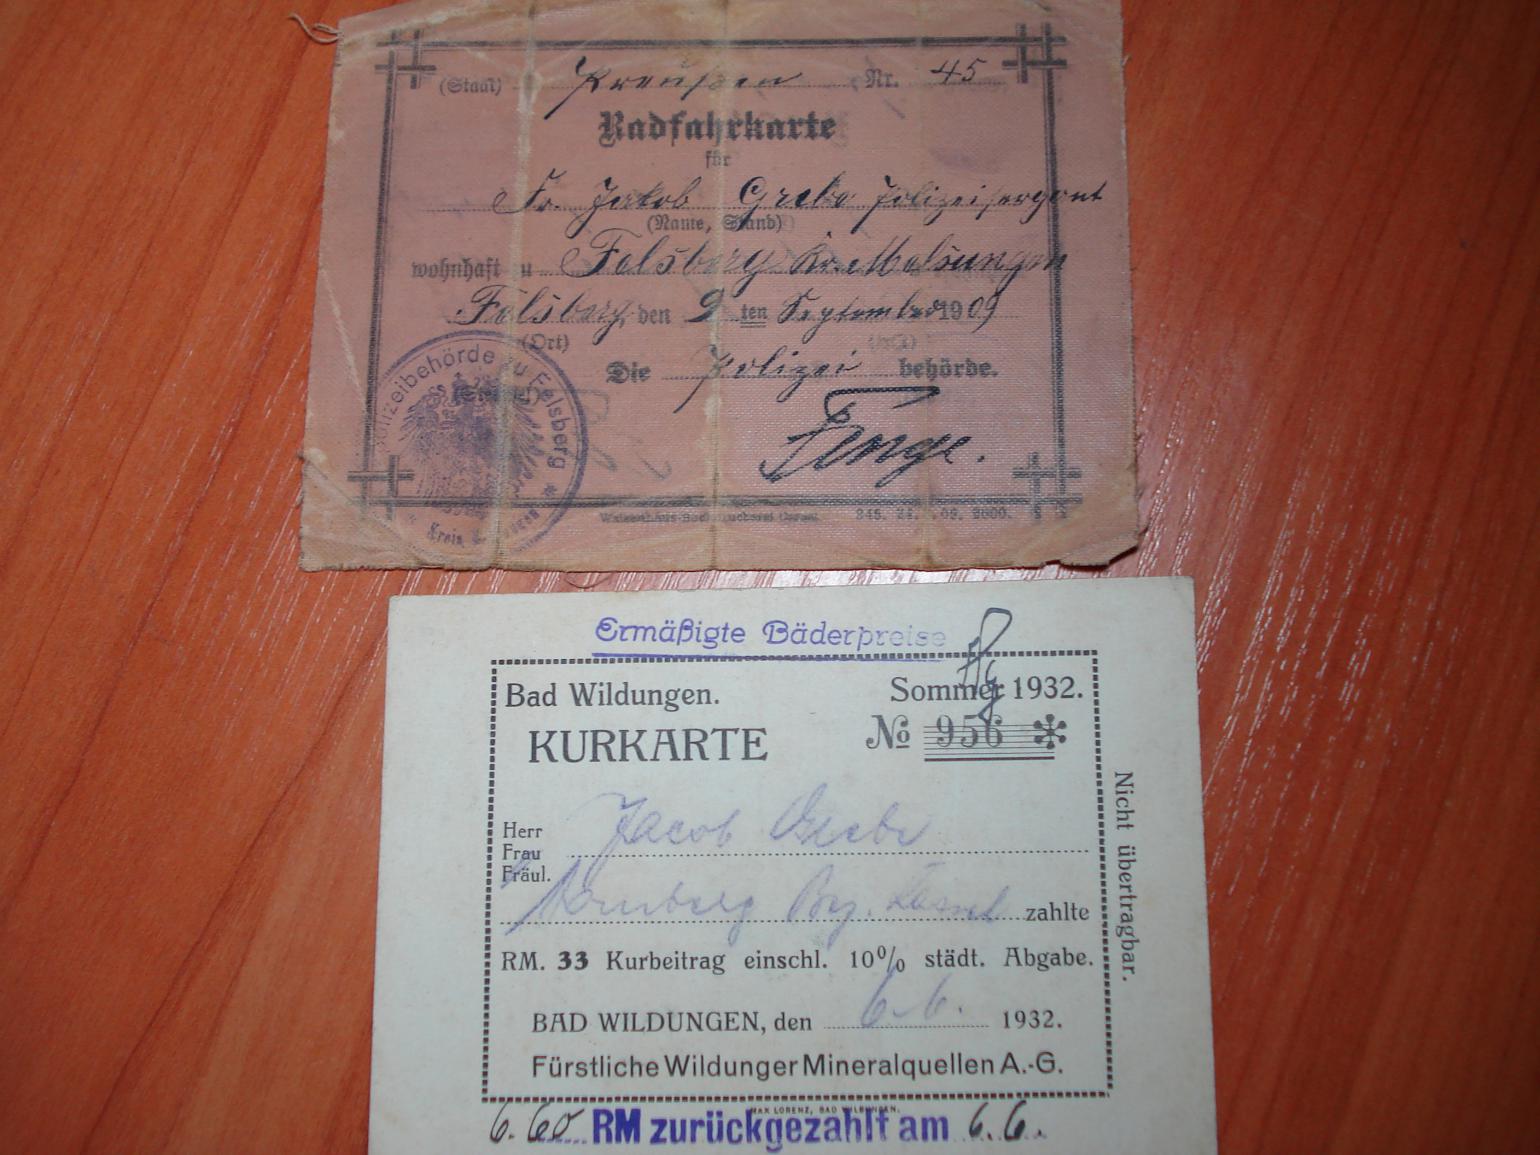 (Staat) Preußen Nr. 45
Radfahrkarte
für
Fr. Jakob Grebe Polizeisergant
(Name, Stand)
wohnhaft zu Felsberg Kr. Melsungen
Felsberg, den 9 ten September 1909
(Ort)
Die Polizei behörde.
Polizeibehörde zu Felsberg
Kreis
Fenge.
Ermäßigte Bäderpreise
Bad Wildungen. Sommer 1932.
KURKARTE № 956 *
Herr
Frau
Fräul.
Jacob Grebe
Homberg Bez. Kassel zahlte
RM. 33 Kurbeitrag einschl. 10% städt. Abgabe.
BAD WILDUNGEN, den 6.6. 1932.
Fürstliche Wildunger Mineralquellen A.-G.
Nicht übertragbar.
MAX LORENZ, BAD WILDUNGEN.
6.60 RM zurückgezahlt am 6.6.